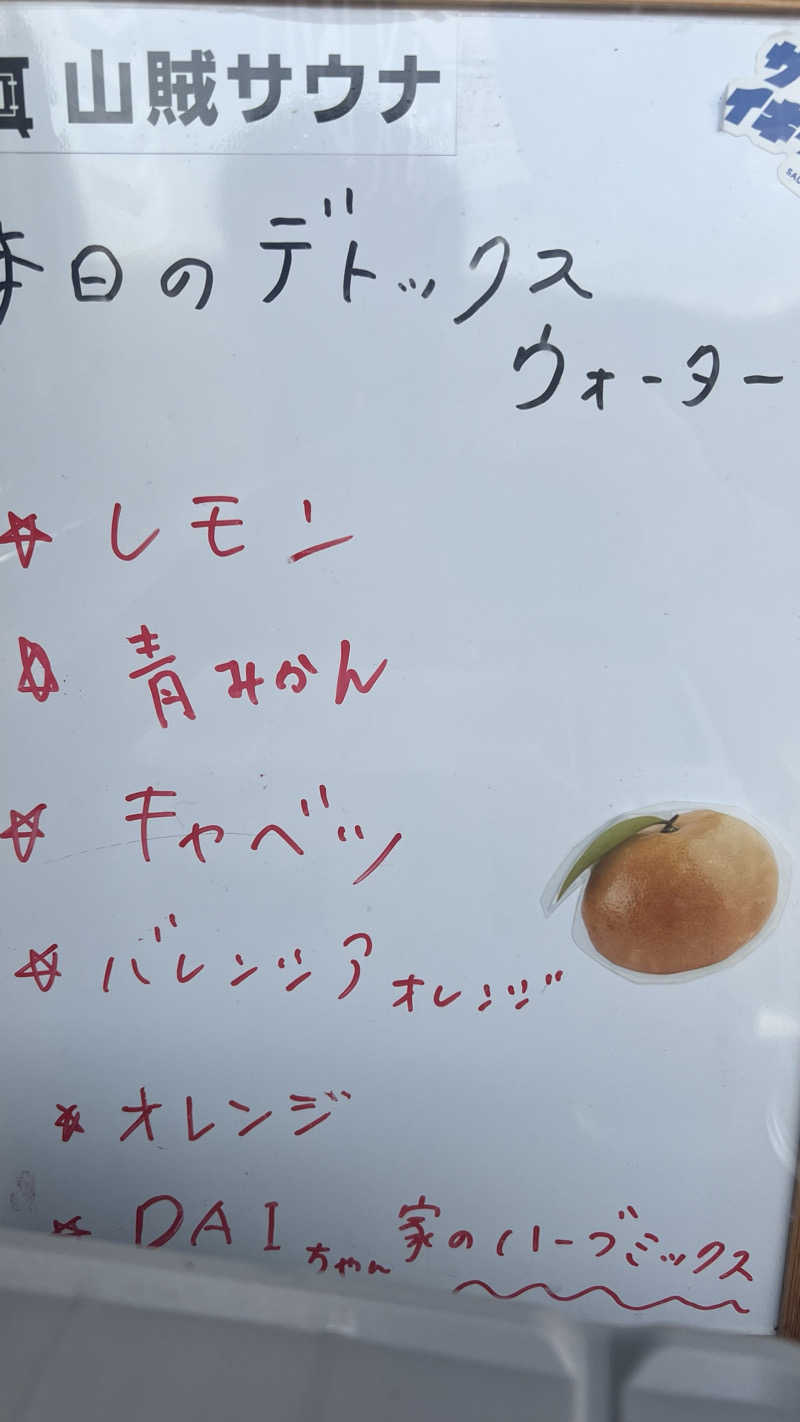 山賊サウナ
本日のデトックス
ウォーター
☆ レモン
☆ 青みかん
☆ キャベツ
☆ バレンシアオレンジ
☆ オレンジ
☆ DAIちゃん家のハーブミックス